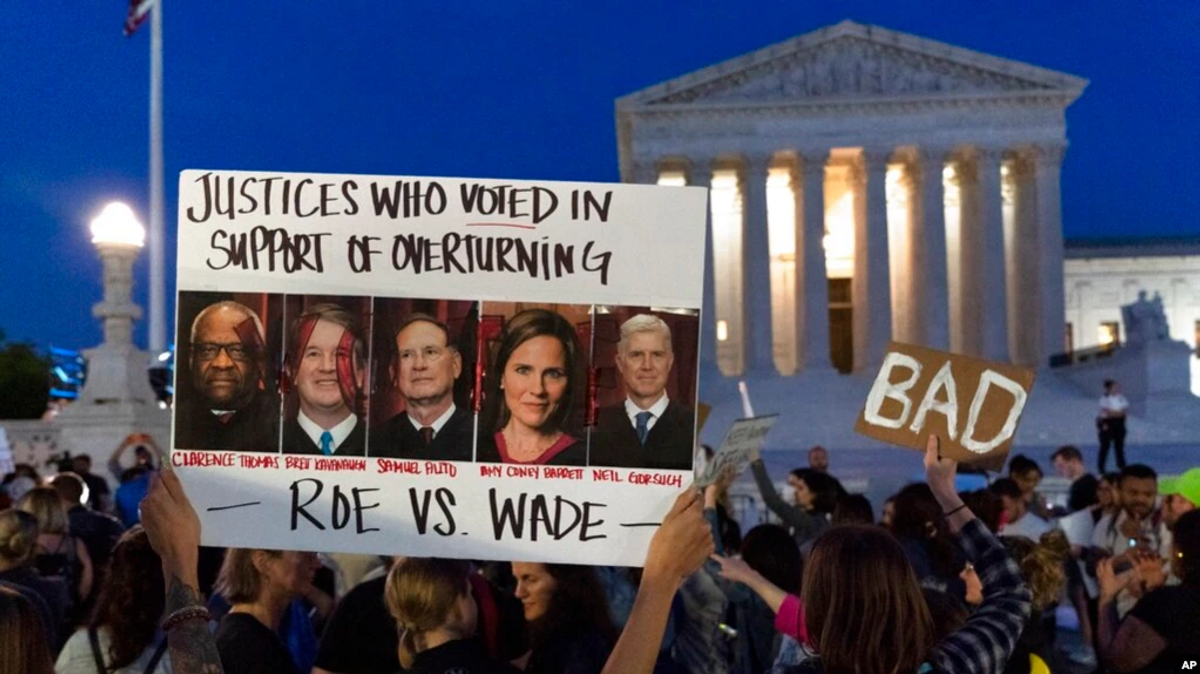 JUSTICES WHO VOTED IN
SUPPORT OF OVERTURNING
CLARENCE THOMAS BRETT KAVANAUGH SAMUEL ALITO AMY CONEY BARRETT NEIL GORSUCH
— ROE VS. WADE —
BAD
AP